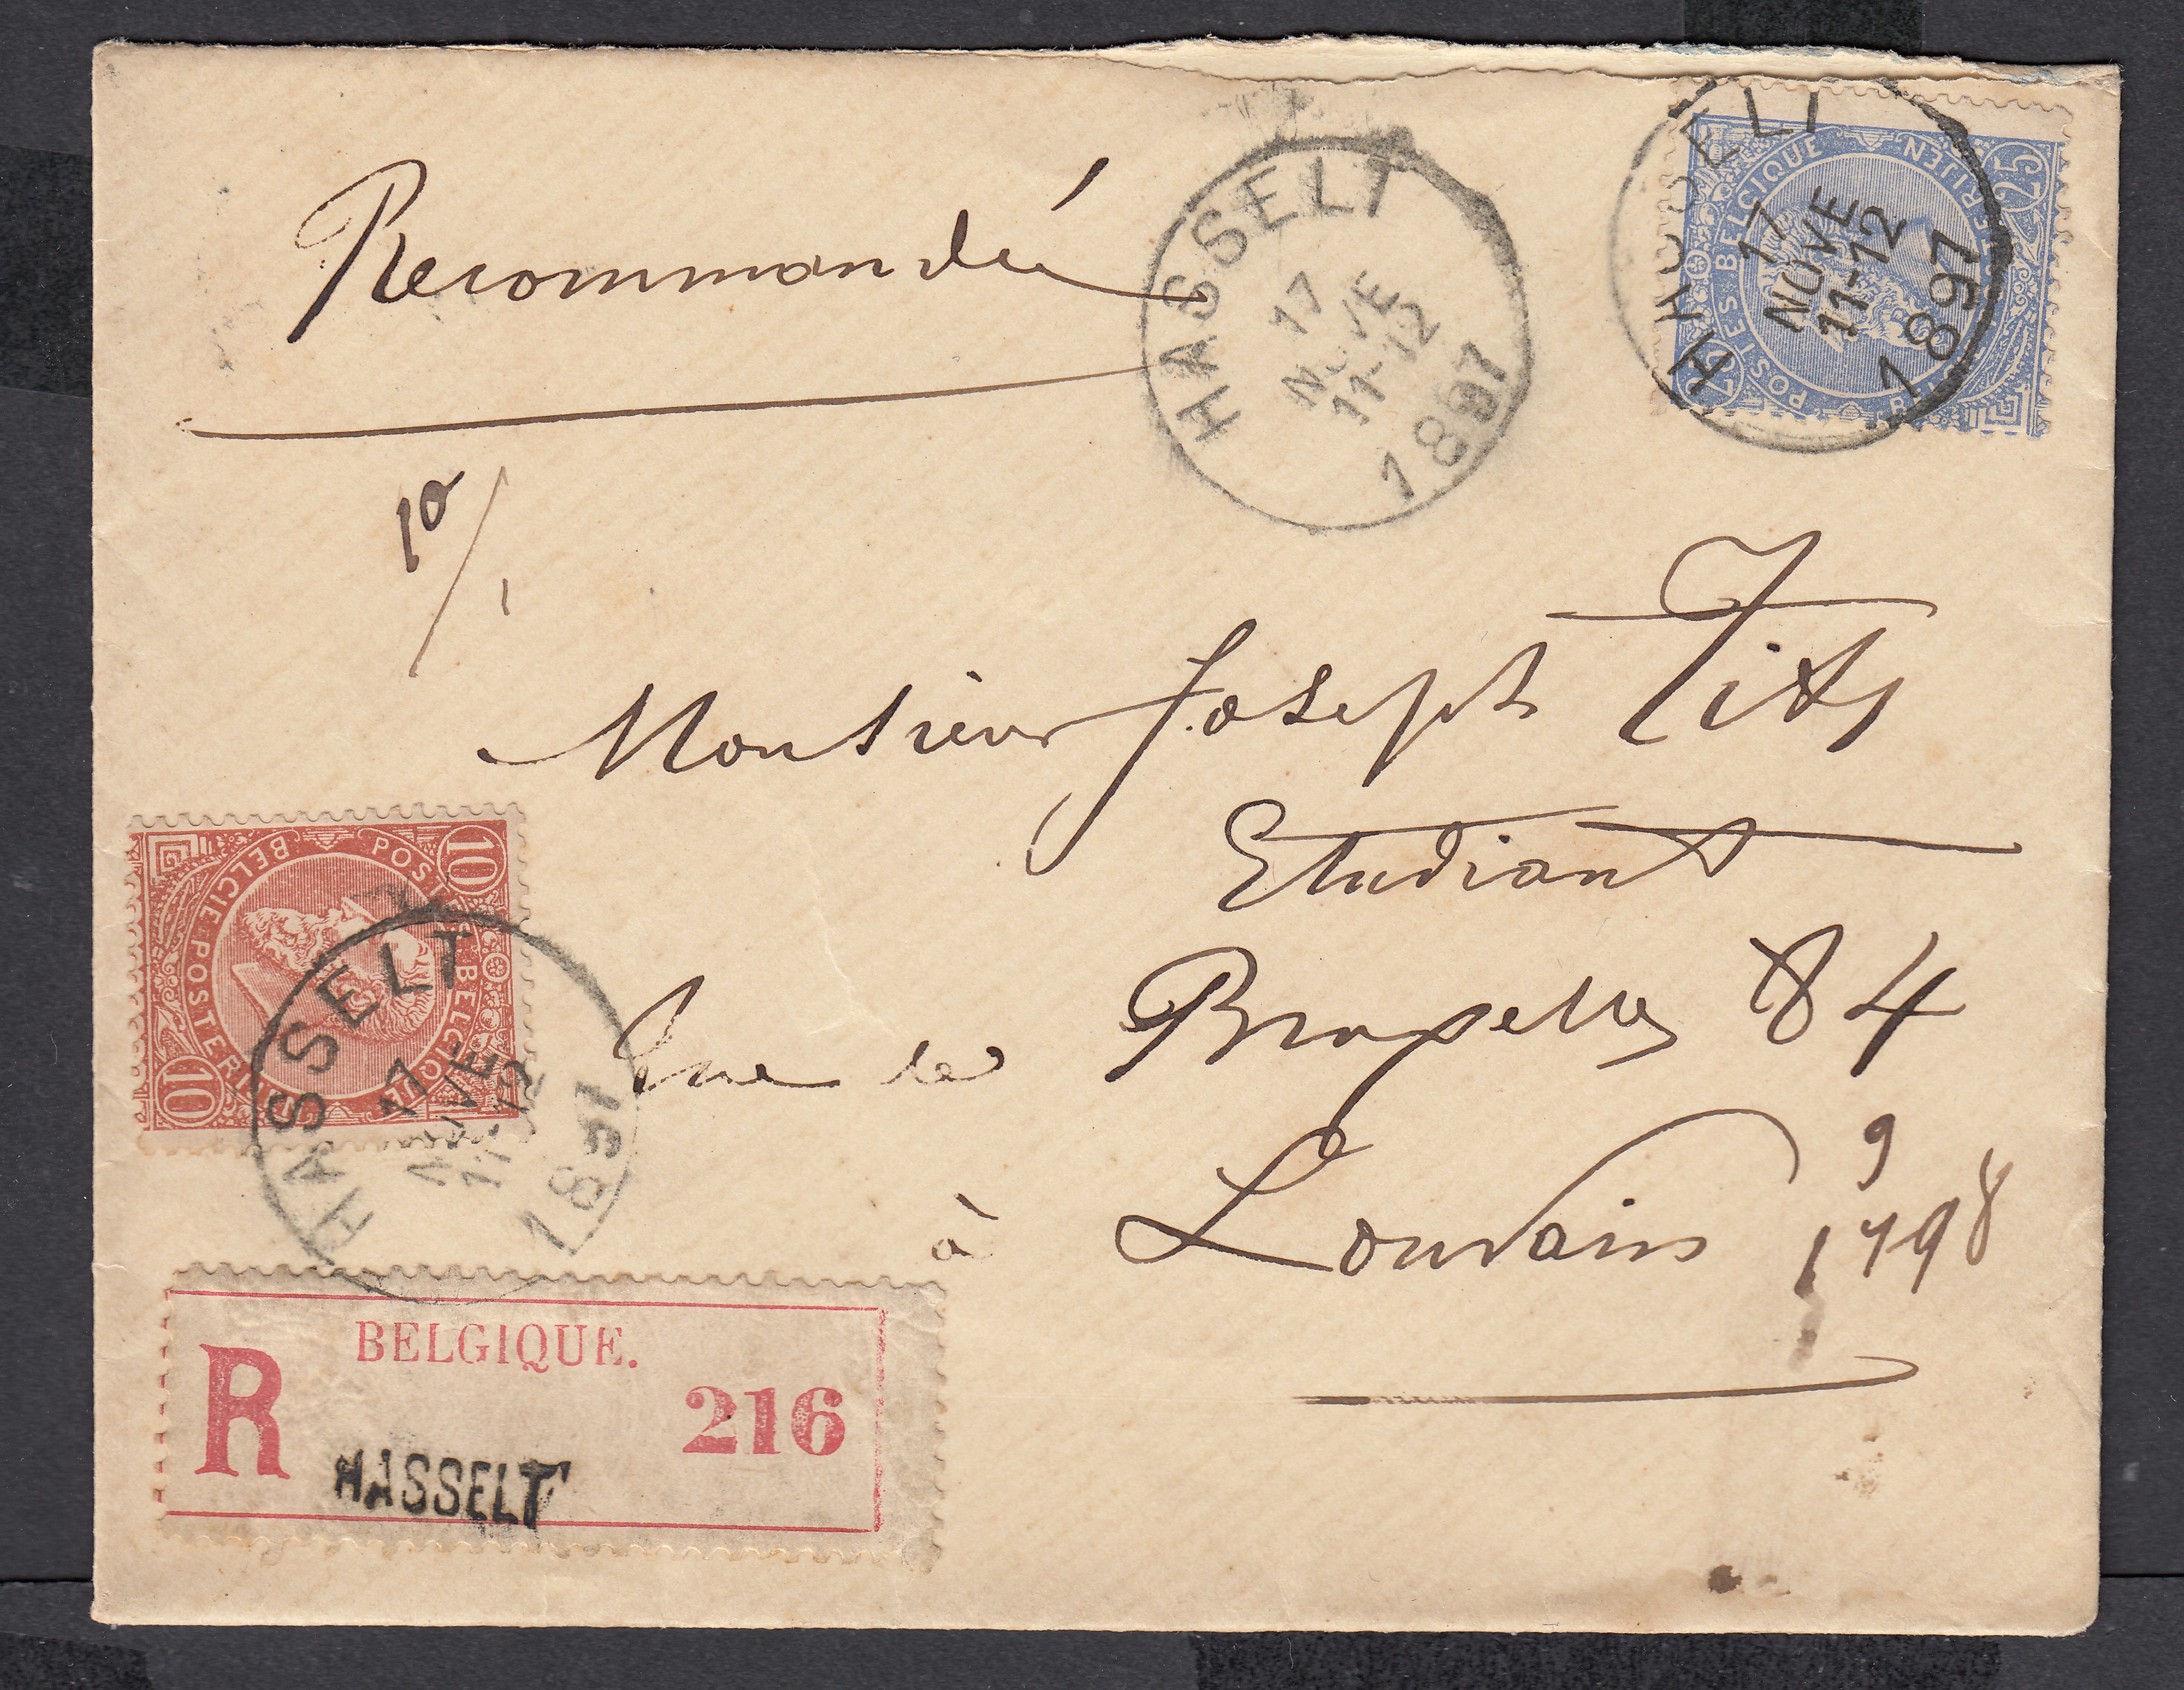 Recommandée
HASSELT
17
NOVE
11-12
1897
HASSELT
17
NOVE
11-12
1897
25
POSTES BELGIQUE
25
10/1
Monsieur Joseph Tits
Etudiant
Rue de Bruxelles 84
à Louvain
9
1798
10
POSTES BELGIQUE
BELGIE POSTERIJEN
10
HASSELT
17
NOVE
11-12
1897
BELGIQUE.
R
216
HASSELT